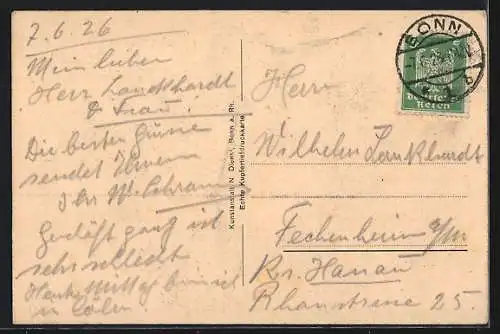 7.6.26
Mein lieber
Herr Lanckhardt
& Frau.
Die besten Grüsse
sendet Ihnen
Ihr W. Schramm
Geschäft ganz ist
sehr schlecht
Heute Mittag bin ich
in Cöln.
Kunstanstalt N. Bonn a. Rh.
Echte Kupfertiefdruckkarte
BONN
Deutsches
Reich
5
Herrn
Wilhelm Lankhardt
Fechenheim a/m
Krs. Hanau
Rhanstrasse 25.